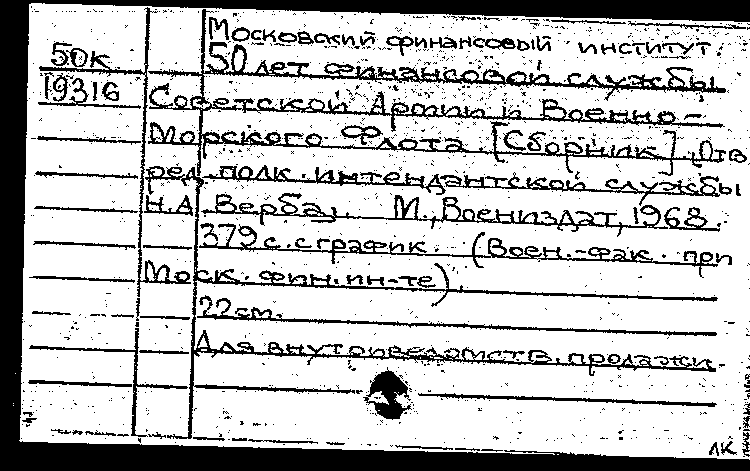 Московский финансовый институт.
50к 50 лет финансовой службы
19316 Советской Армии и Военно-
Морского Флота. [Сборник]. Отв.
ред. полк. интендантской службы
Н.А. Верба. М., Воениздат, 1968.
379 с. с график. (Воен.-фак. при
Моск. фин. ин-те).
22 см.
Для внутриведомств. продажи.
ЛК